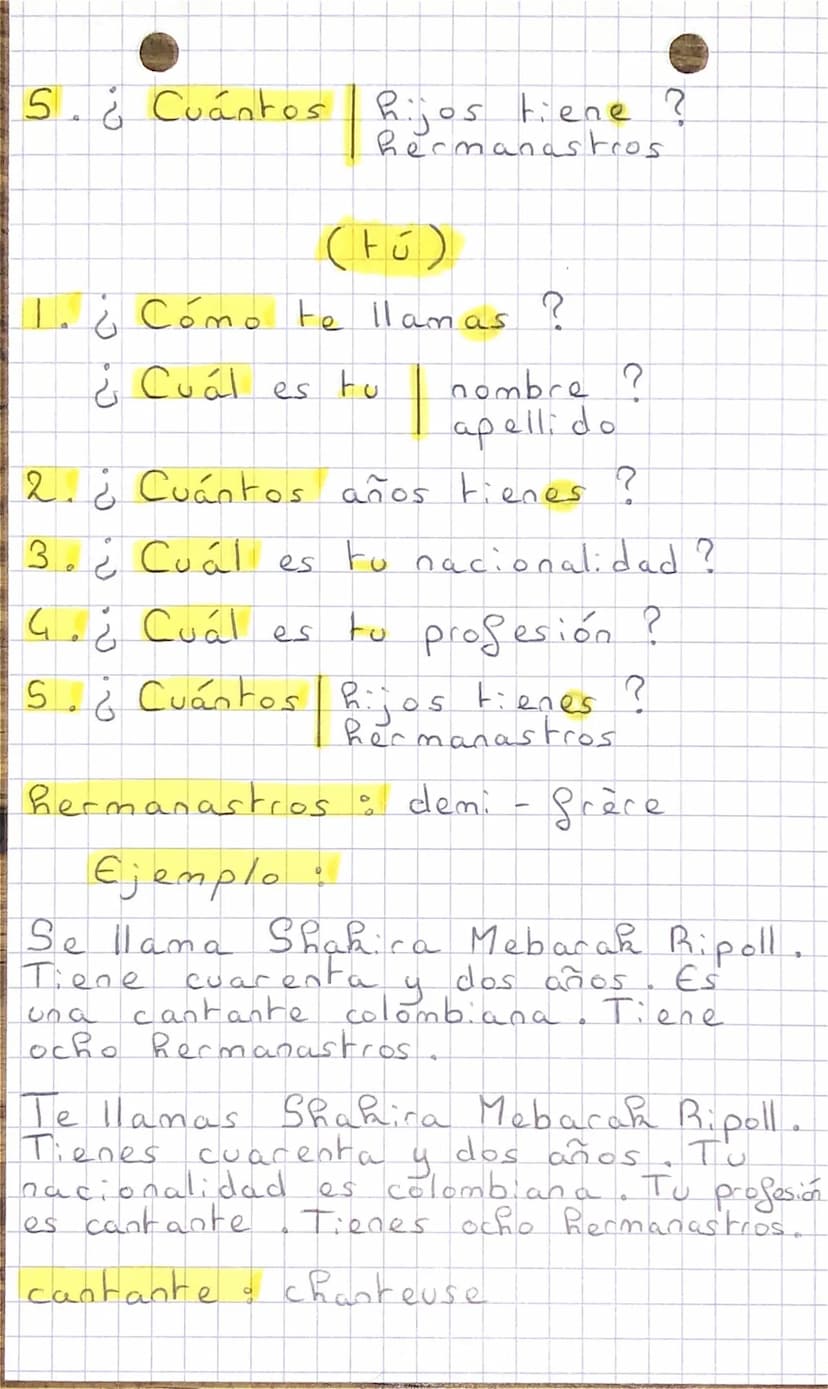 5. ¿ Cuántos | hijos tiene ?
hermanastros
(tú)
1. ¿ Cómo te llamas ?
¿ Cuál es tu | nombre ?
apellido
2. ¿ Cuántos años tienes ?
3. ¿ Cuál es tu nacionalidad ?
4. ¿ Cuál es tu profesión ?
5. ¿ Cuántos | hijos tienes ?
hermanastros
hermanastros : demi - frère
Ejemplo :
Se llama Shakira Mebarak Ripoll.
Tiene cuarenta y dos años. Es
una cantante colombiana. Tiene
ocho hermanastros.
Te llamas Shakira Mebarak Ripoll.
Tienes cuarenta y dos años. Tu
nacionalidad es colombiana. Tu profesión
es cantante. Tienes ocho hermanastros.
cantante : chanteuse